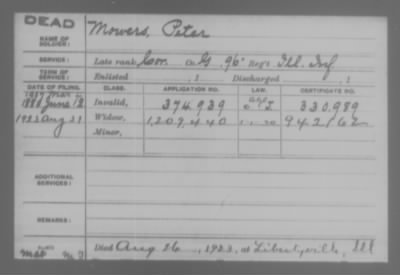 DEAD
NAME OF SOLDIER: Mowers, Peter
SERVICE: Late rank, Cor. Co. G, 96" Reg't Ill. Inf
TERM OF SERVICE: Enlisted , 1 Discharged , 1
DATE OF FILING. CLASS. APPLICATION NO. LAW. CERTIFICATE NO.
1880 June 12 Invalid, 374.939 330.989
1922 Aug 31 Widow, 1,209,440 942162
Minor,
ADDITIONAL SERVICES:
REMARKS:
Died Aug 26, 1922, at Libertyville, Ill